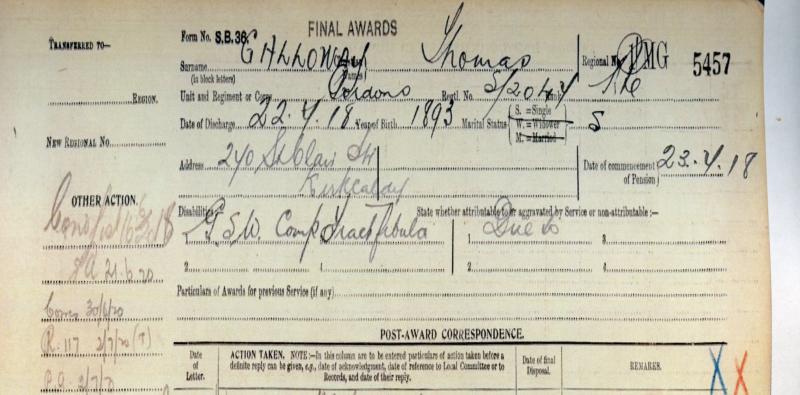 FINAL AWARDS
TRANSFERRED TO—
Form No. S.B. 36.
Surname GALLOWAY Thomas Regional No. PMG 5457
(in block letters) Names
Unit and Regiment or Corps Gordons Regtl. No. S/2044 Rank Pte
REGION.
Date of Discharge 22.4.18 Year of Birth 1893 Marital Status S. = Single W. = Widower M. = Married S
NEW REGIONAL No.
Address 240 St Clair St Kirkcaldy
Date of commencement of Pension 23.4.18
OTHER ACTION.
Disabilities State whether attributable to or aggravated by Service or non-attributable :—
1. G.S.W. Comp Fract Fibula 3. 1. Due to 3.
2. 4. 2. 4.
21.6.20
Particulars of Awards for previous Service (if any)
30/6/20
R. 117 2/7/20 (T)
POST-AWARD CORRESPONDENCE.
P.A. 2/7/20
Date of Letter.
ACTION TAKEN. NOTE :—In this column are to be entered particulars of action taken before a definite reply can be given, e.g., date of acknowledgment, date of reference to Local Committee or to Records, and date of their reply.
Date of final Disposal.
REMARKS.
X X